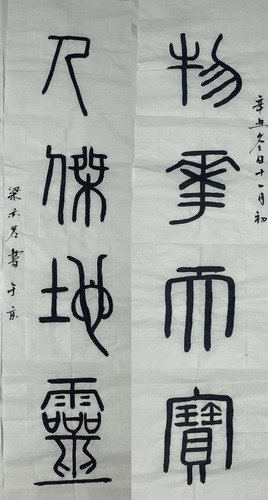 辛丑冬日十一月初
物華天寶
人傑地靈
梁書于京